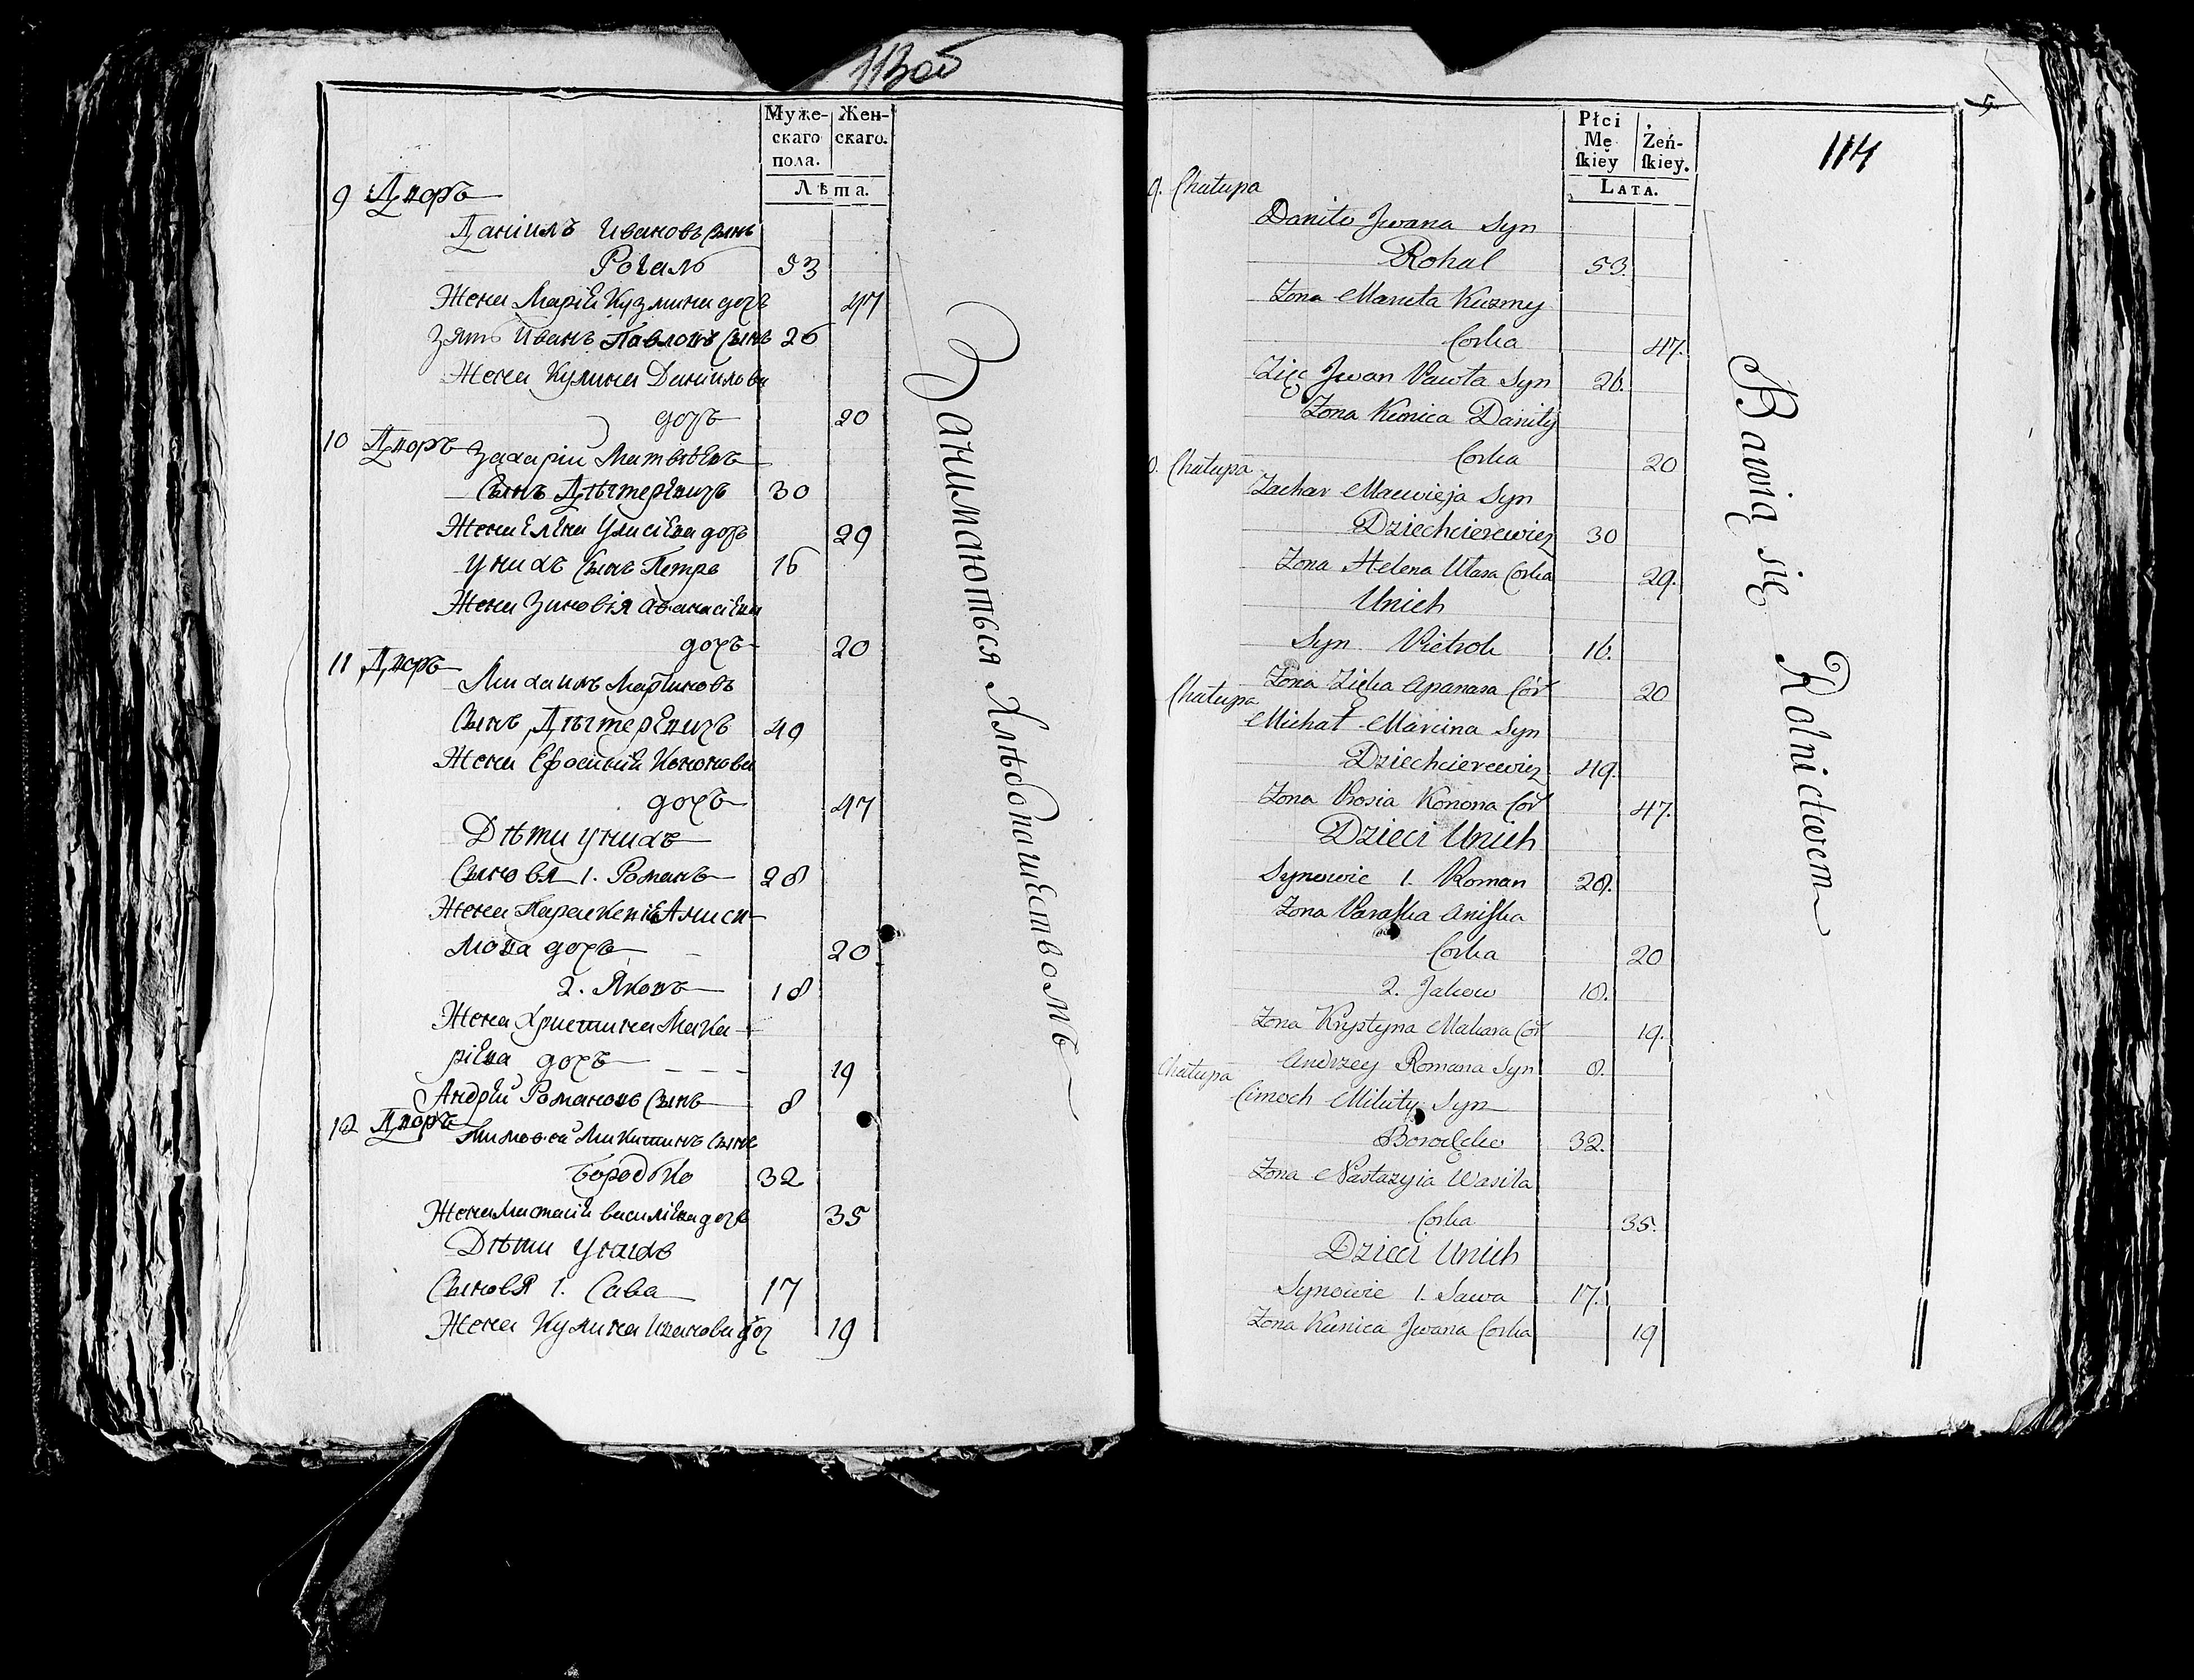 113об
Муже-
скаго
пола.
Жен-
скаго.
Лѣта.
9 Дворъ
Даніилъ Ивановъ сынъ
Рогаль 53
Жена Марія Кузмина дочь 47
Зять Иванъ Павловъ сынъ 26
Жена Кулина Данилова
дочь 20
10 Дворъ Захарій Матвѣевъ
Сынъ Дѣхтеревичъ 30
Жена Елена Уласіева дочь 29
У нихъ сынъ Петръ 16
Жена Зиновія Афанасіева
дочь 20
11 Дворъ
Михаилъ Мартиновъ
Сынъ Дѣхтеревичъ 49
Жена Ефосинія Кононова
дочь 47
Дѣти у нихъ
Сыновя 1. Романъ 28
Жена Параскевія Аниси-
мова дочь 20
2. Яковъ 18
Жена Христина Мака-
ріева дочь 19
Андрій Романовъ сынъ 8
12 Дворъ
Тимофей Микитинъ сынъ
Бородько 32
Жена Настасія Василіева дочь 35
Дѣти у нихъ
Сыновя 1. Сава 17
Жена Кулина Иванова доч 19
Занимаються хлѣбопашествомъ
5
114
Płci
Mę
ſkiey
Żeń-
ſkiey.
LATA.
9. Chałupa
Daniło Jwana Syn
Rohal 53.
Zona Maruta Kuzmy
Corka 47.
Zięć Jwan Pawła Syn 26.
Zona Kunica Daniły
Corka 20
0. Chałupa
Zachar Macwieja Syn
Dziechcierewicz 30
Zona Helena Ułasa Corka 29.
Unich
Syn Pietrok 16.
Zona Zięka Apanasa Cór 20
Chałupa
Michał Marcina Syn
Dziechcierewicz 49.
Zona Prosia Konona Cór 47.
Dzieci Unich
Synowie 1. Roman 28.
Zona Paraſka Aniſka
Corka 20
2. Jakow 18.
Zona Krystyna Makara Cór 19.
Andrzey Romana Syn 8.
Chałupa
Cimoch Mikity Syn
Borodzko 32.
Zona Nastazyia Wasila
Corka 35.
Dzieci Unich
Synowie 1. Sawa 17.
Zona Kunica Jwana Corka 19
Bawią się Rolnictwem